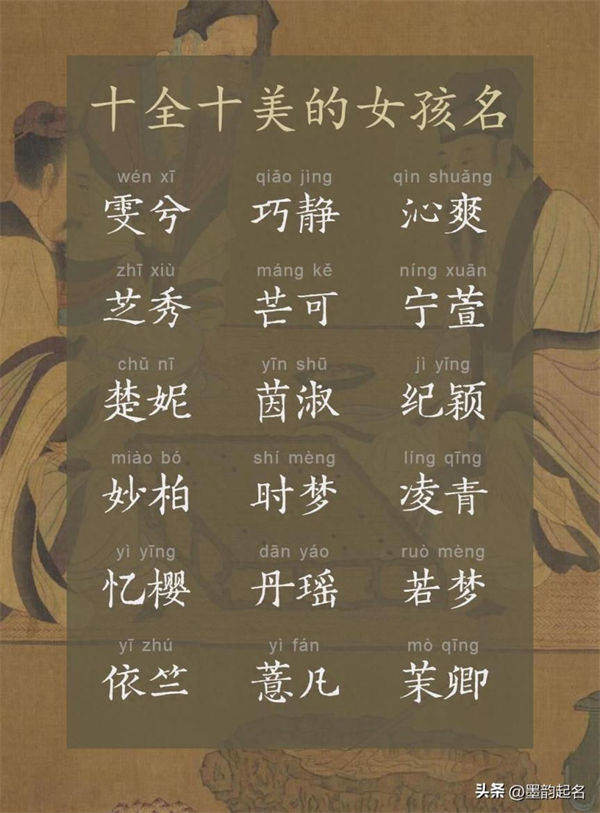 十全十美的女孩名
wén xī qiāo jìng qìn shuǎng
雯兮 巧静 沁爽
zhī xiù máng kě níng xuān
芝秀 芒可 宁萱
chǔ nī yīn shū jì yǐng
楚妮 茵淑 纪颖
miào bó shí mèng líng qīng
妙柏 时梦 凌青
yì yīng dān yáo ruò mèng
忆樱 丹瑶 若梦
yī zhú yì fán mò qīng
依竺 薏凡 茉卿
头条 @墨韵起名